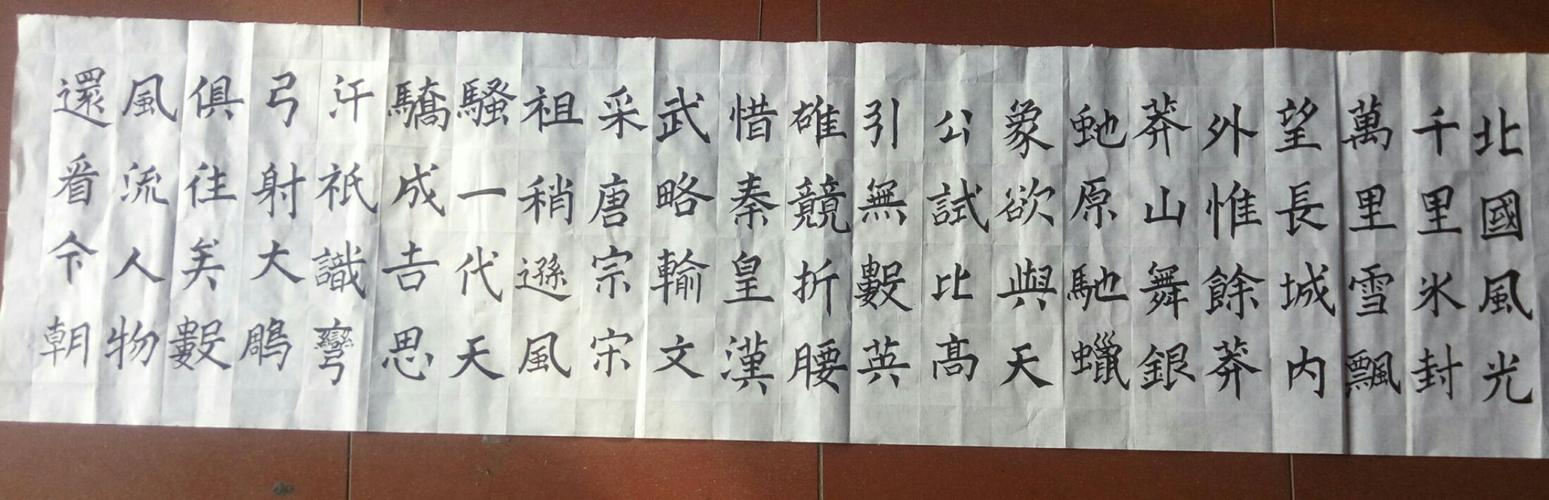 北國風光
千里氷封
萬里雪飄
望長城内
外惟餘莽
莽山舞銀
虵原馳蠟
象欲與天
公試比高
引無數英
雄競折腰
惜秦皇漢
武略輸文
采唐宗宋
祖稍遜風
騷一代天
驕成吉思
汗祇識彎
弓射大鵰
俱往矣數
風流人物
還看今朝